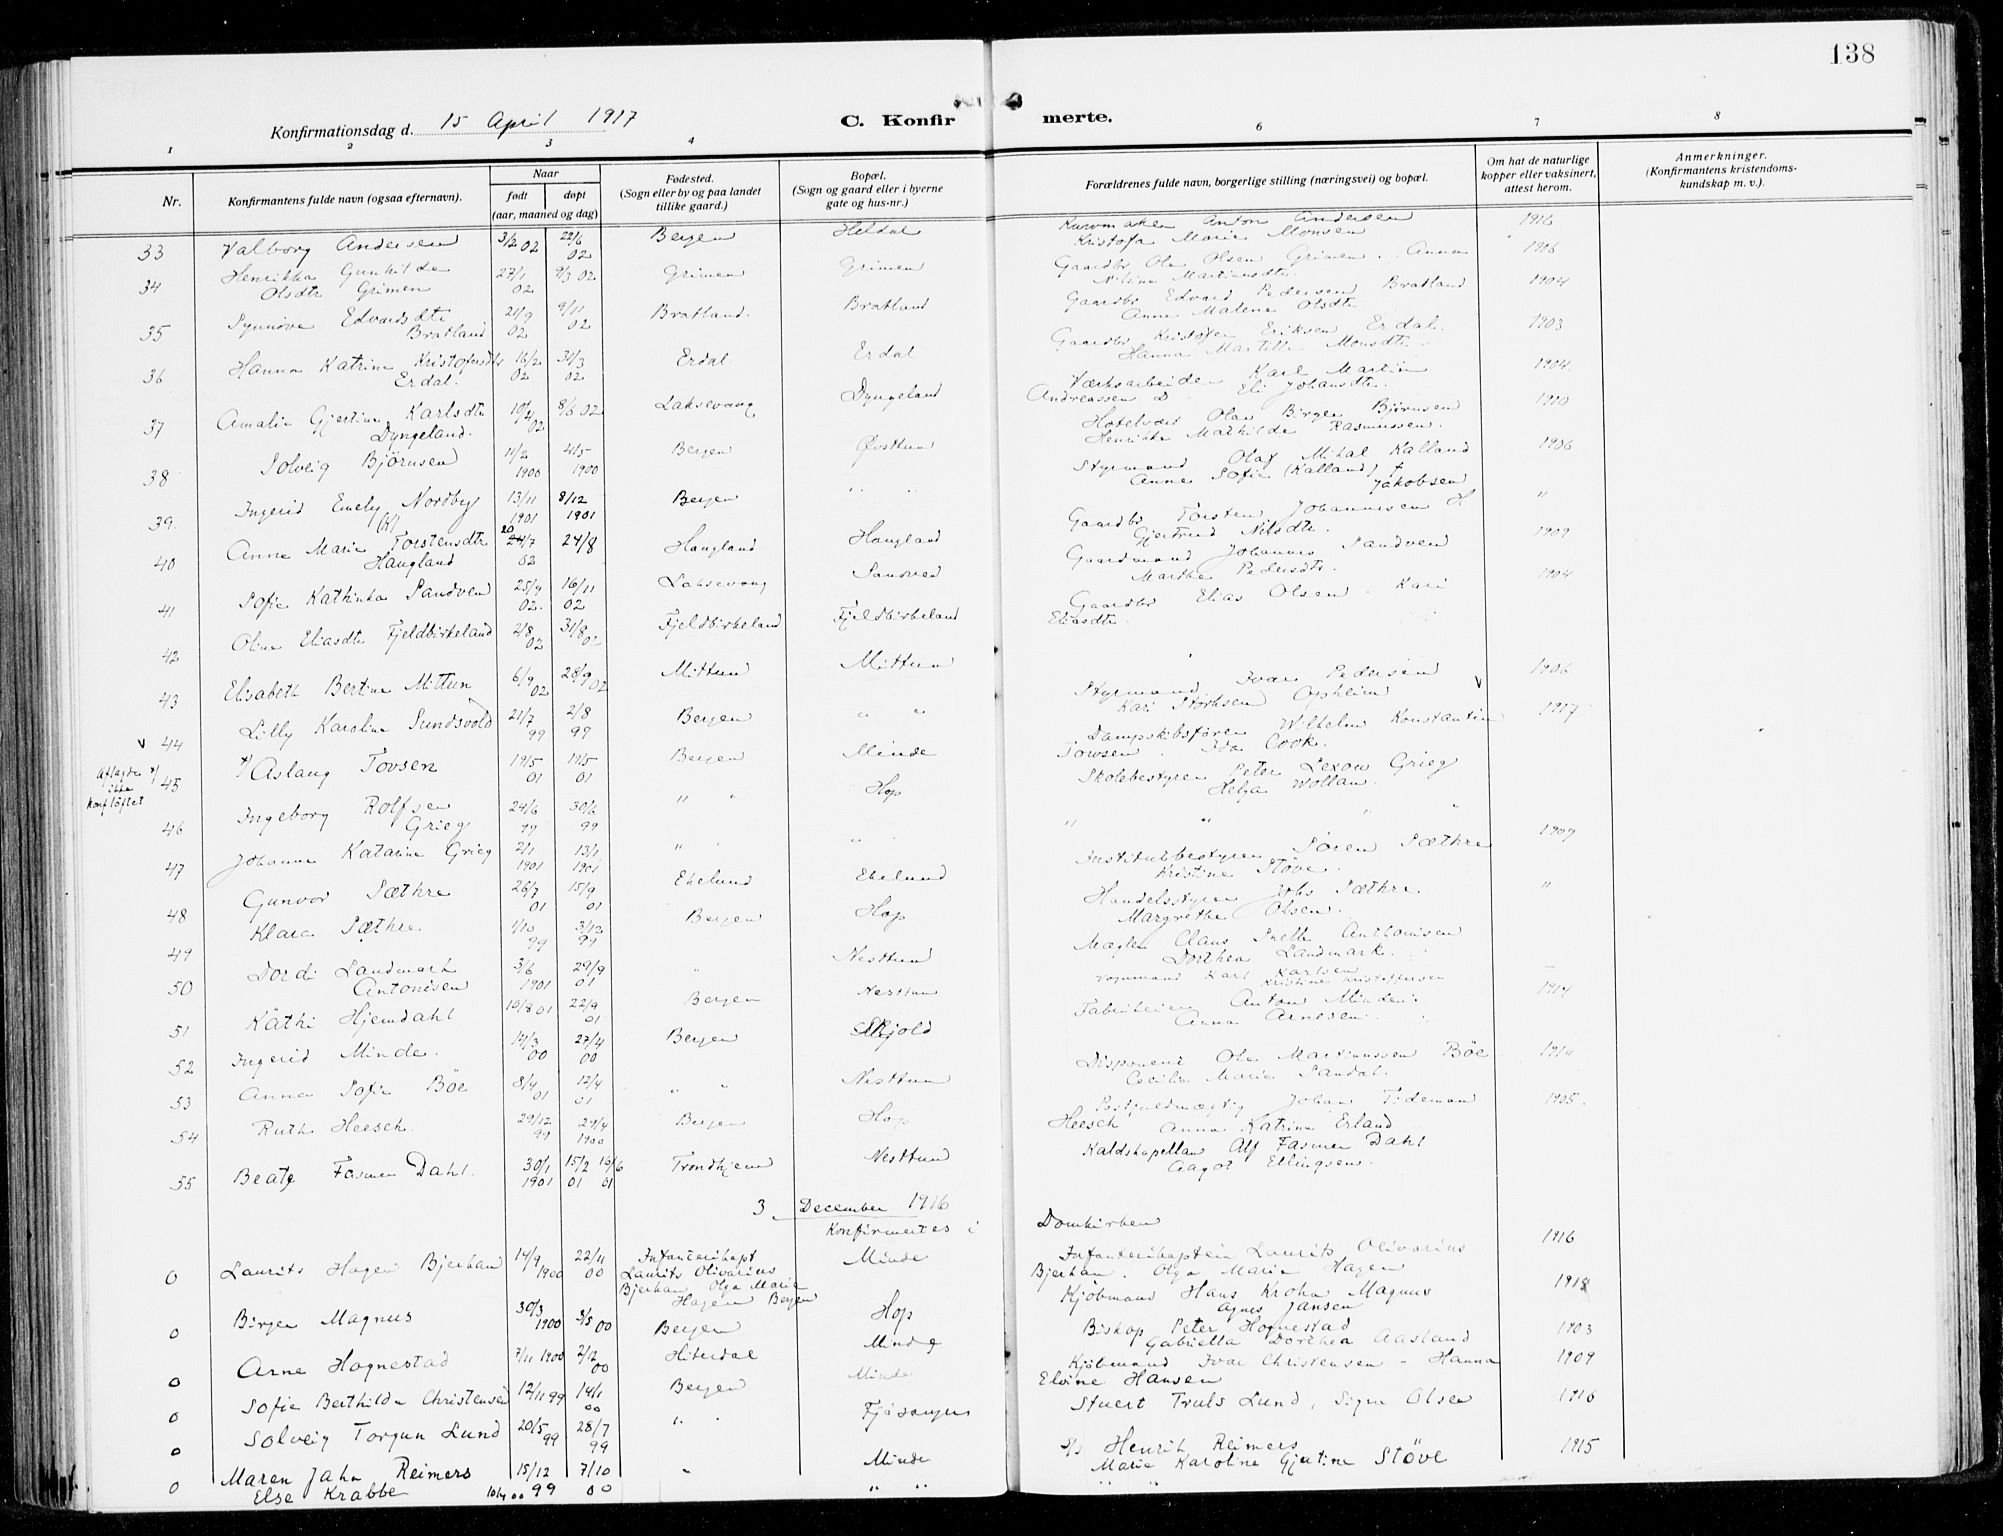 138
Konfirmationsdag d. 15 April 1917
C. Konfirmerte.
1 2 3 4 6 7 8
Nr.
Konfirmantens fulde navn (ogsaa efternavn).
Naar
født døpt
(aar, maaned og dag)
Fødested.
(Sogn eller by og paa landet
tillike gaard.)
Bopæl.
(Sogn og gaard eller i byerne
gate og hus-nr.)
Forældrenes fulde navn, borgerlige stilling (næringsvei) og bopæl.
Om hat de naturlige
kopper eller vaksinert,
attest herom.
Anmerkninger.
(Konfirmantens kristendoms-
kundskap m. v.).
33 Valborg Andersen 3/2 02 22/6 02 Bergen Heldal Anton Andersen 1916
Kristofa Marie Monsen
34 Henrikka Gunhilde 27/1 02 9/3 02 Grimen Grimen Gaardbr Ole Olsen Grimen. Anna 1906
Olsdtr Grimen Martinusdtr.
35 Synnøve Edvardsdtr 21/9 02 9/11 02 Bratland. Bratland Gaardbr Edvard Pedersen Bratland 1904
Bratland Anne Malene Olsdtr
36 Hanna Katrine Kristofersdtr 16/2 02 31/3 02 Erdal Erdal Gaardbr Kristofer Eriksen Erdal. 1903
Erdal. Hanna Monsdtr
37 Amalie Gjertine Karlsdtr 10/4 02 8/6 02 Laksevaag Dyngeland Værksarbeider Karl Martin 1904
Dyngeland. Andreassen D Eli Johansdtr.
38 Solveig Bjørnsen 11/2 1900 4/5 1900 Bergen Øvsttun Hotelvært Olav Birger Bjørnsen 1910
Henrikke Mathilde Rasmussen.
39. Ingerid Emely Nordby 13/11 1901 8/12 1901 Bergen " " Styrmand Olaf Mikal Kalland 1906
(K) Anne Sofie (Kalland) † Jakobsen
40 Anne Marie Torstensdtr 20 24/7 02 24/8 Haugland Haugland Gaardbr Torsten Johannesen H "
Haugland Gjertrud Nilsdtr.
41 Sofie Kathinka Sandven 25/9 02. 16/11 02 Laksevaag Sandven Gaardmand Johannes Sandven 1909
Marthe Pedersdtr.
42 Oline Eliasdtr Fjeldbirkeland 2/8 02 31/8 Fjeldbirkeland Fjeldbirkeland Gaardbr Elias Olsen. Kari 1904
Eliasdtr.
43 Elisabeth Bertine Mittun 6/9 02 28/9 02 Mittun Mittun
v 44 Lilly Karoline Sundsvold 21/7 99 2/8 99 Bergen " " Styrmand Ivar Pedersen 1906
Kari Opheim v
Aflagde x/
ikke
konfløftet
45 x/ Aslaug Tovsen 19/5 01 01 Bergen Minde Dampskibsfører Wilhelm Konstantin 1917
Cook.
46 Ingeborg Rolfsen 24/6 99 30/6 99 " " Hop Skolebestyrer Peter Lexow Grieg
Grieg Helga Wollan
47 Johanne Katarina Grieg 2/1 1901 13/1 1901 " " " " " "
48 Gunvor Sæthre 26/7 01 15/9 01 Ekelund Ekelund Institutbestyrer Søren Sæthre 1909
Kristine Støve.
49 Klara Sæthre. 1/10 99 3/12 99 Bergen Hop Handelsstyrer Johs Sæthre "
Margrethe Olsen.
50 Dordi Landmark 3/6 1901 29/9 01 " Nesttun Mægler Claus Anthonisen
Antonisen Dorthea Landmark.
51 Käthi Hjemdahl 10/8 01 22/9 01 Bergen Nesttun Karl Karlsen
Kristine Kristoffersen
52 Ingerid Minde. 14/3 00 27/4 00 Bergen Skjold Anton Minde. 1914
Anna Arnesen.
53 Anna Sofie Böe 8/4 01 12/4 01 " " Nesttun Disponent Ole Martinussen Böe
Cecilie Marie Sandal.
54 Ruth Heesch. 29/12 99 29/4 1900 Bergen Hop Johan Tideman 1905.
Heesch Anna Katrine Erland
55 Beate Fasmer Dahl. 30/1 1901 15/2 01 16/6 01 Trondhjem Nesttun Kaldskapellan Alf Fasmer Dahl
Aagot Ellingsen.
3 December 1916
Konfirmertes i Domkirken
0 Laurits Hagen Bjerkan 14/9 1900 22/11 00 Infanterikapt Minde Infanterikaptein Laurits Olivarius 1916
Laurits Olivarius
Bjerkan Olga Marie Bjerkan. Olga Marie Hagen
Hagen Bergen
0 Birger Magnus 30/3 1900 3/5 00 Bergen Hop Kjöbmand Hans Krohn Magnus 1918
Agnes Jansen
0 Arne Hognestad 7/11 1900 2/12 00 Hiterdal Minde Biskop Peter Hognestad 1903
Gabriella Dorthea Aasland
0 Sofie Berthilda Christensen 12/11 99 14/1 00 Bergen Minde Kjöbmand Ivar Christensen - Hanna 1909
Elvine Hansen
0 Solveig Torgun Lund 20/5 99 28/7 99 " " Fjøsanger Stuert Truls Lund, Signe Olsen 1916
0 Maren Jahn Reimers 15/12 99 7/10 00 " Minde Henrik Reimers 1915
Marie Karoline Gjertine Støve
Else Krabbe " " " "